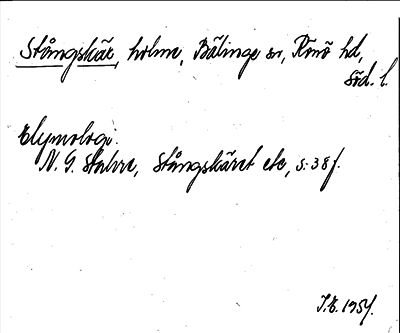 Stångskär, holme, Bälinge sn, Rönö hd,
Söd. l.
Etymologi.
N. G. Stahre, Stångskäret etc, s. 38 f.
I.E. 1954.